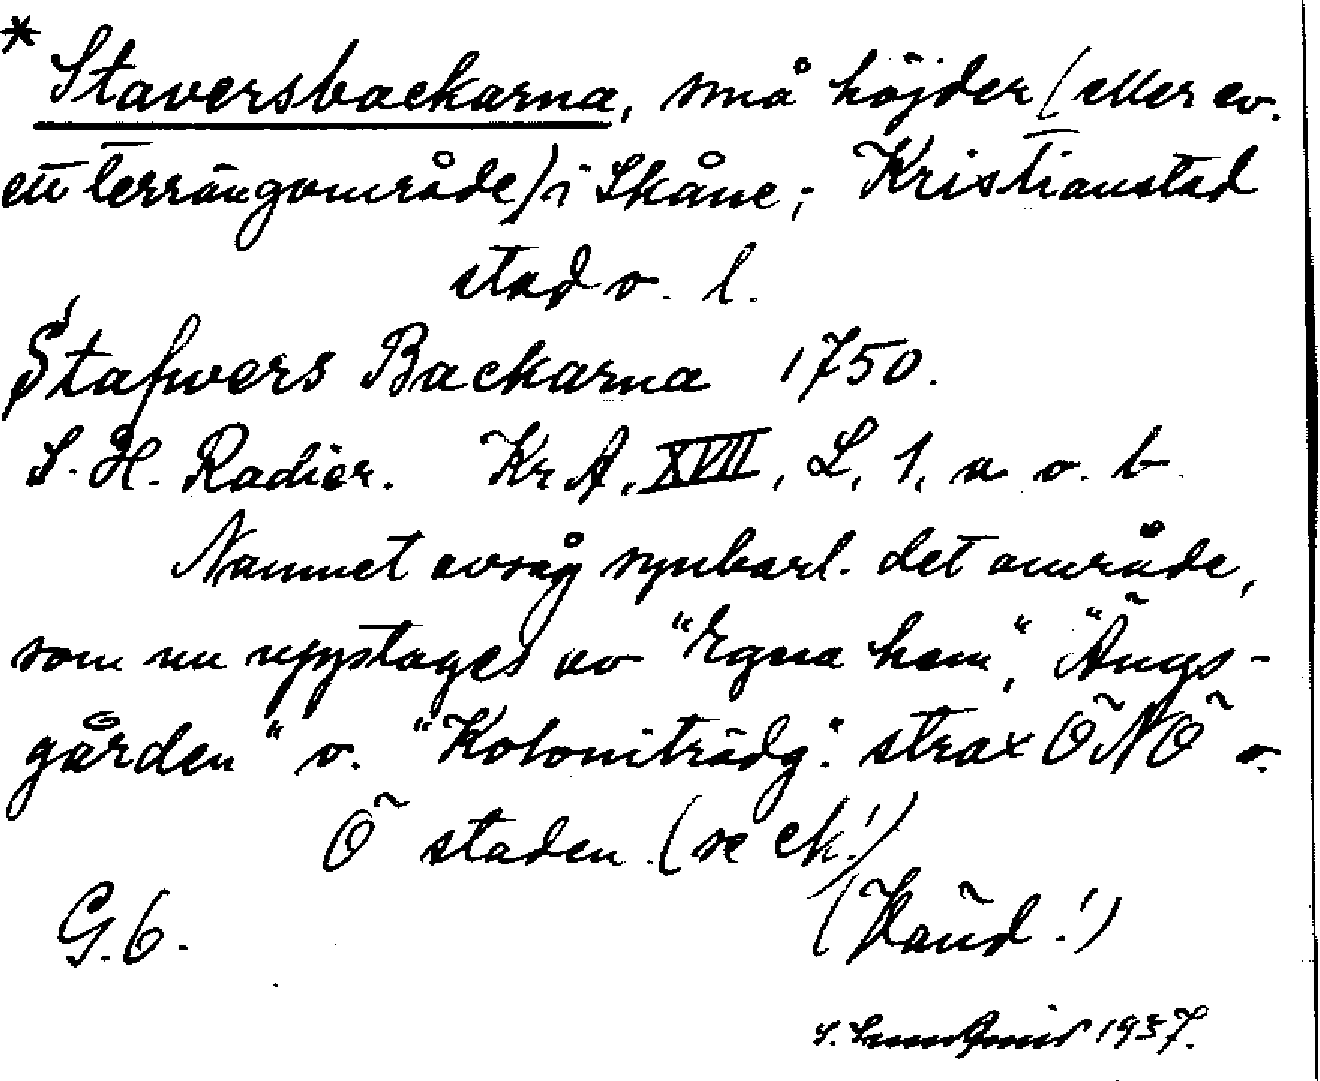 * Staversbackarna, små höjder (eller ev.
ett terrängområde) i Skåne; Kristianstad
stad o. l.
Stafwers Backarna 1750.
S. H. Radier. Kr A, XVII, L, 1, a o. b
Namnet avsåg synbarl. det område,
som nu upptages av "Egna hem", "Ängs-
gården" o. "Koloniträdg." strax ÖNÖ o.
Ö staden (se ek!)
G. 6. (Händ!)
1937.